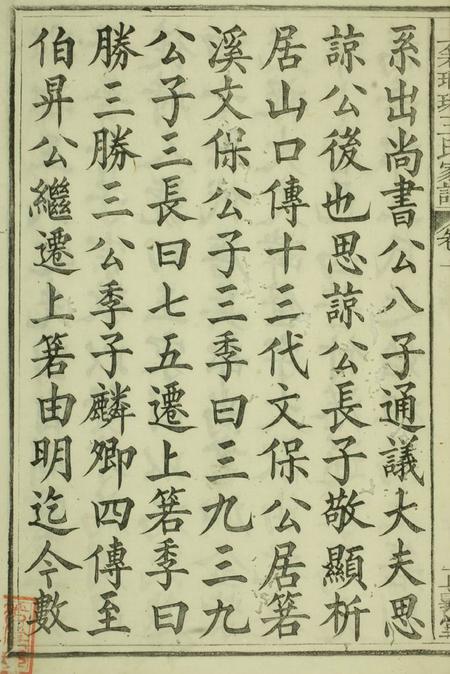 系出尚書公八子通議大夫思
諒公後也思諒公長子敬顯析
居山口傳十三代文保公居箬
溪文保公子三季曰三九三九
公子三長曰七五遷上箬季曰
勝三勝三公季子麟卿四傳至
伯昇公繼遷上箬由明迄今數